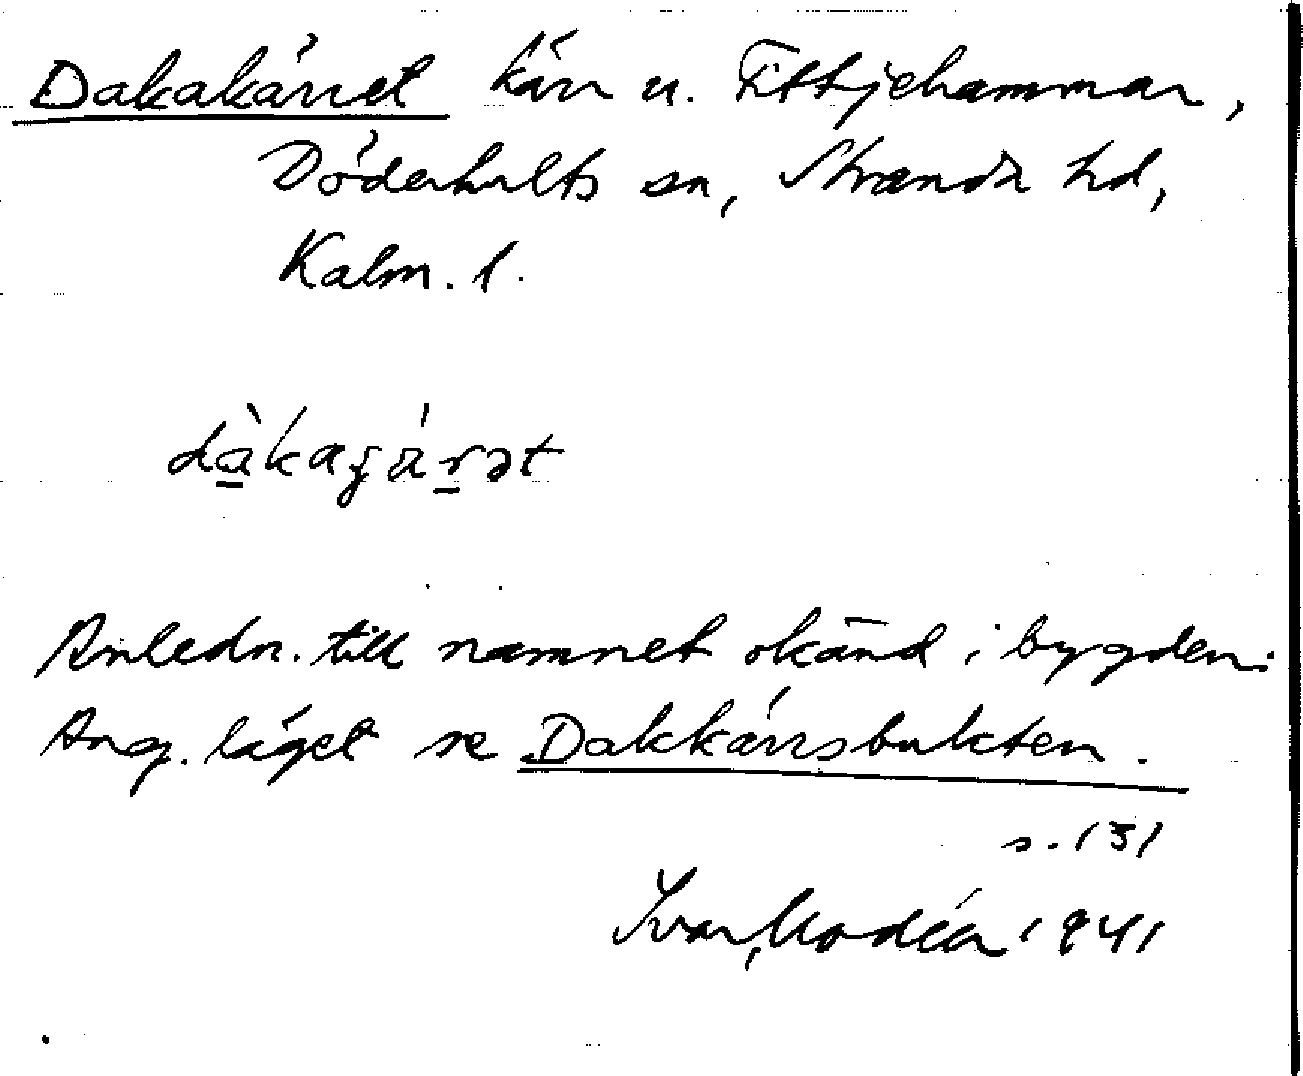 Dakakärret kärr u. Fittjehammar,
Döderhults sn, Stranda hd,
Kalm. l.
Anledn. till namnet okänd i bygden.
Ang. läget se Dakkärrsbukten.
s. 131
Ivar Modéer 1941